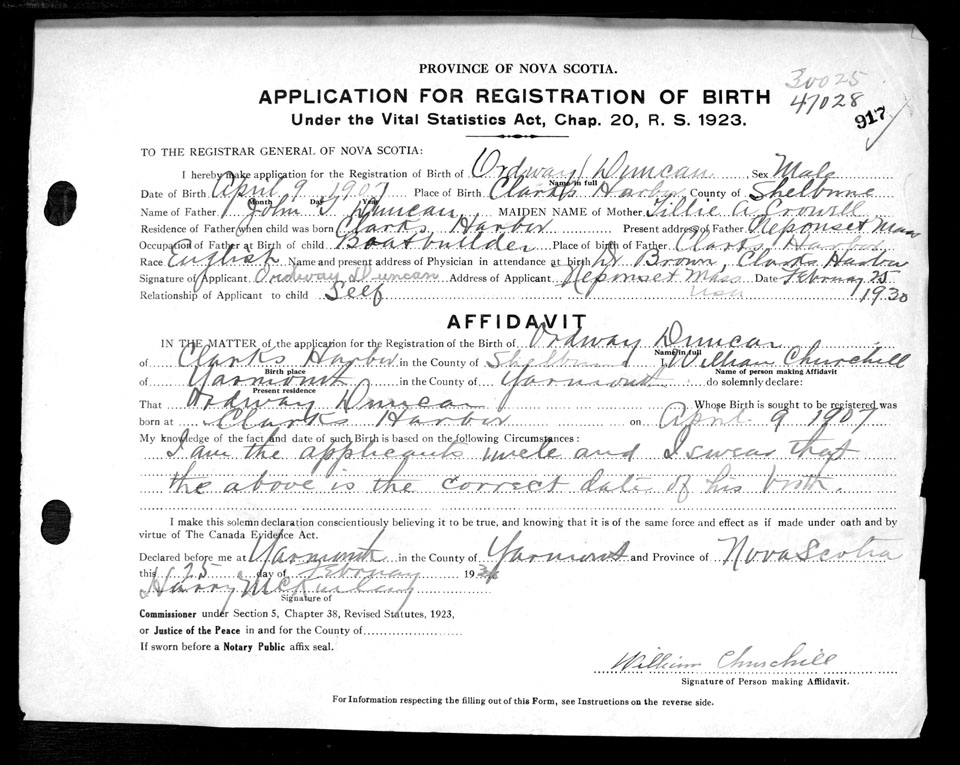 PROVINCE OF NOVA SCOTIA.
30025
APPLICATION FOR REGISTRATION OF BIRTH
47028
917
Under the Vital Statistics Act, Chap. 20, R. S. 1923.
TO THE REGISTRAR GENERAL OF NOVA SCOTIA:
I hereby make application for the Registration of Birth of Ordway Duncan Sex Male
Name in full
Date of Birth April 9 1907 Place of Birth Clarks Harbor County of Shelburne
Month Day Year
Name of Father John T Duncan MAIDEN NAME of Mother Tillie A Crowell
Residence of Father when child was born Clarks Harbor Present address of Father Neponset Mass
Occupation of Father at Birth of child Boatbuilder Place of birth of Father Clarks Harbor
Race English Name and present address of Physician in attendance at birth Dr Brown, Clarks Harbor
Signature of Applicant Ordway Duncan Address of Applicant Neponset Mass Date February 25
Relationship of Applicant to child Self USA 1930
AFFIDAVIT
IN THE MATTER of the application for the Registration of the Birth of Ordway Duncan
Name in full
of Clarks Harbor in the County of Shelburne I, William Churchill
Birth place Name of person making Affidavit
of Yarmouth in the County of Yarmouth do solemnly declare:
Present residence
That Ordway Duncan Whose Birth is sought to be registered was
born at Clarks Harbor on April 9 1907
My knowledge of the fact and date of such Birth is based on the following Circumstances:
I am the applicants uncle and I swear that
the above is the correct date of his birth.
I make this solemn declaration conscientiously believing it to be true, and knowing that it is of the same force and effect as if made under oath and by
virtue of The Canada Evidence Act.
Declared before me at Yarmouth in the County of Yarmouth and Province of Nova Scotia
this 25 day of February 193
Harry
Signature of
Commissioner under Section 5, Chapter 38, Revised Statutes, 1923,
or Justice of the Peace in and for the County of
If sworn before a Notary Public affix seal.
William Churchill
Signature of Person making Affidavit.
For Information respecting the filling out of this Form, see Instructions on the reverse side.